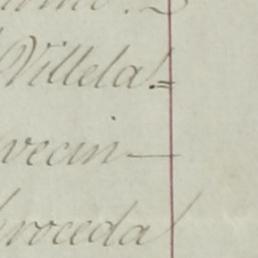 Villela!=
vecin—
proceda